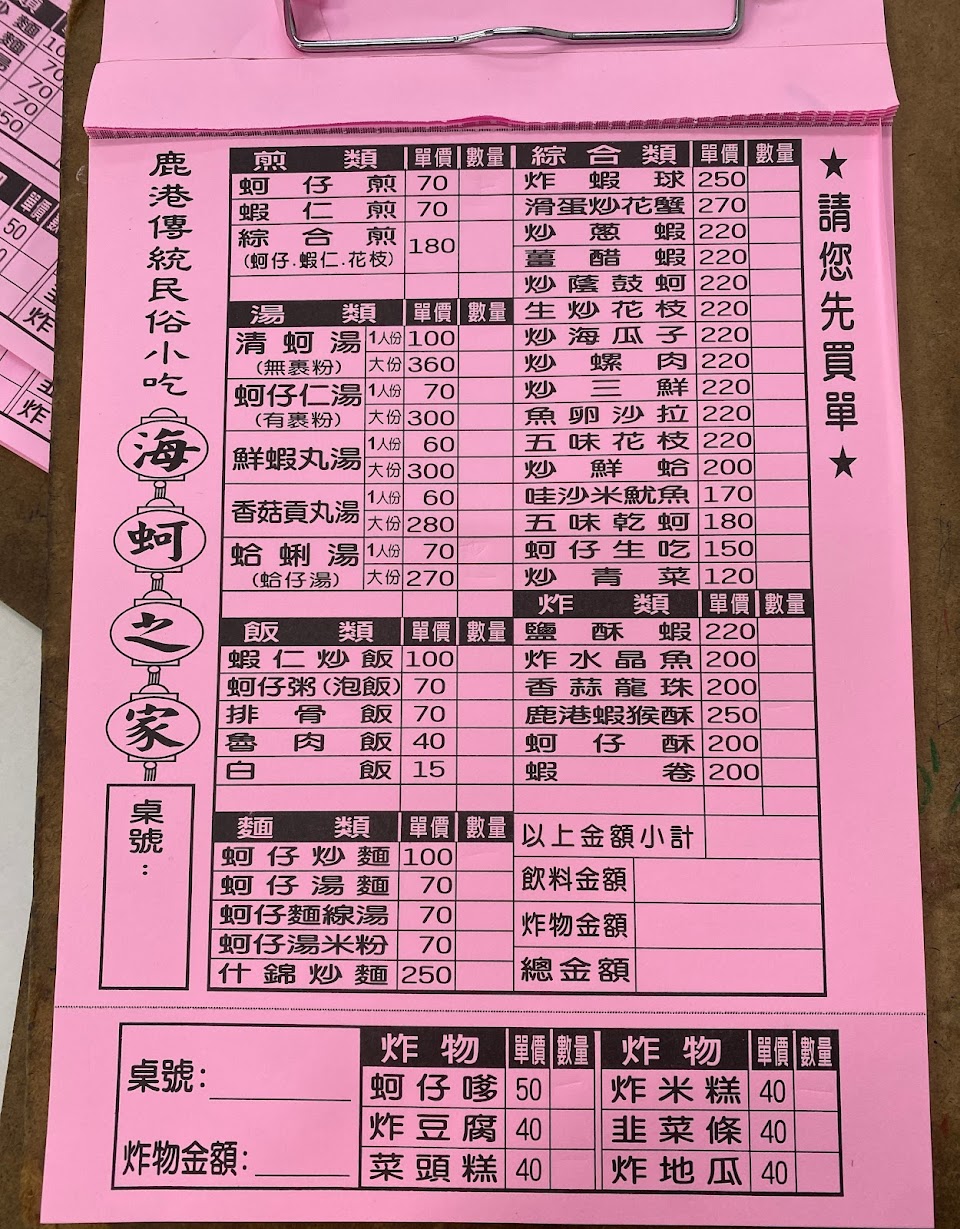 鹿港傳統民俗小吃
海蚵之家
桌號：
煎類 單價 數量
蚵仔煎 70
蝦仁煎 70
綜合煎 180
(蚵仔.蝦仁.花枝)
湯類 單價 數量
清蚵湯 1人份 100
(無裹粉) 大份 360
蚵仔仁湯 1人份 70
(有裹粉) 大份 300
鮮蝦丸湯 1人份 60
大份 300
香菇貢丸湯 1人份 60
大份 280
蛤蜊湯 1人份 70
(蛤仔湯) 大份 270
飯類 單價 數量
蝦仁炒飯 100
蚵仔粥(泡飯) 70
排骨飯 70
魯肉飯 40
白飯 15
麵類 單價 數量
蚵仔炒麵 100
蚵仔湯麵 70
蚵仔麵線湯 70
蚵仔湯米粉 70
什錦炒麵 250
綜合類 單價 數量
炸蝦球 250
滑蛋炒花蟹 270
炒蔥蝦 220
薑醋蝦 220
炒蔭鼓蚵 220
生炒花枝 220
炒海瓜子 220
炒螺肉 220
炒三鮮 220
魚卵沙拉 220
五味花枝 220
炒鮮蛤 200
哇沙米魷魚 170
五味乾蚵 180
蚵仔生吃 150
炒青菜 120
炸類 單價 數量
鹽酥蝦 220
炸水晶魚 200
香蒜龍珠 200
鹿港蝦猴酥 250
蚵仔酥 200
蝦卷 200
以上金額小計
飲料金額
炸物金額
總金額
★請您先買單★
桌號:
炸物金額:
炸物 單價 數量
蚵仔嗲 50
炸豆腐 40
菜頭糕 40
炸物 單價 數量
炸米糕 40
韭菜條 40
炸地瓜 40